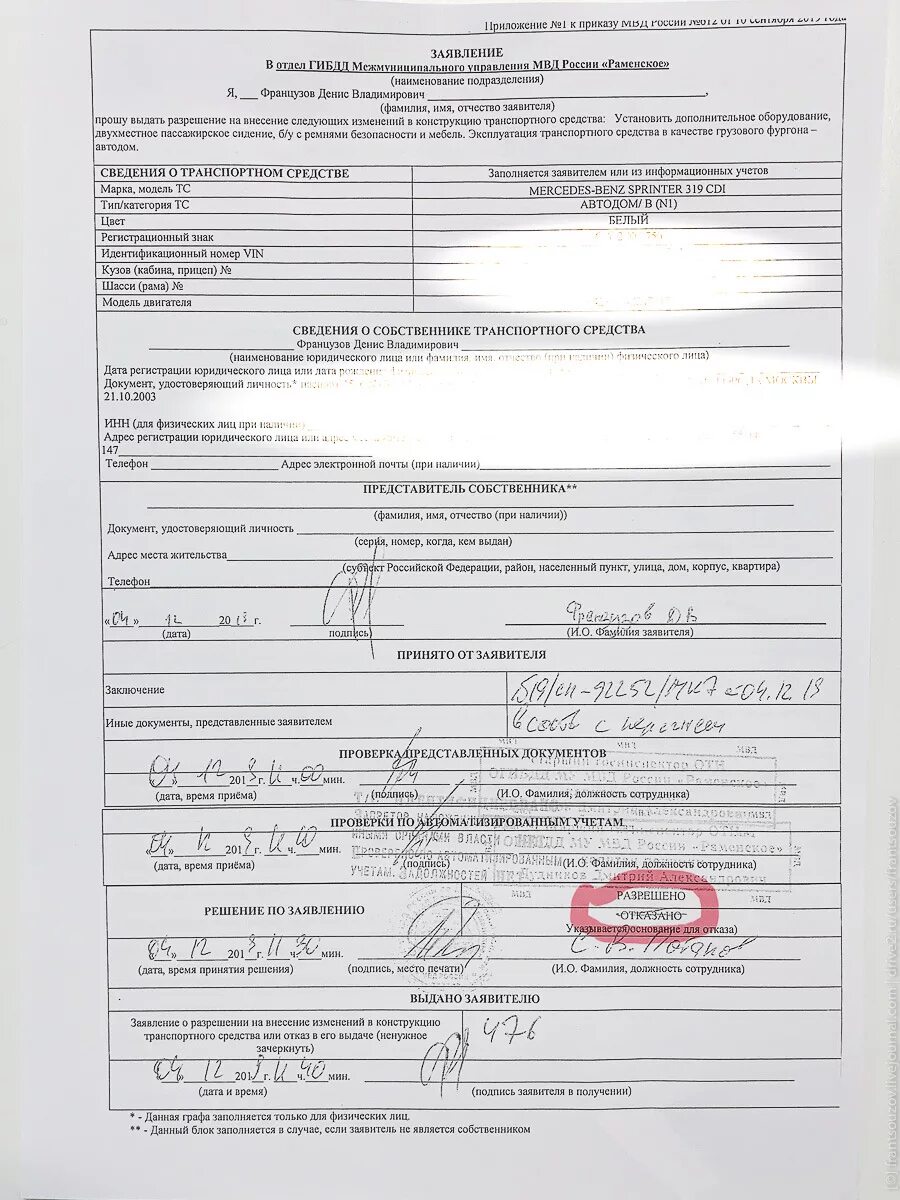 Приложение №1 к приказу МВД России №612 от 10 сентября 2019 года
ЗАЯВЛЕНИЕ
В отдел ГИБДД Межмуниципального управления МВД России «Раменское»
(наименование подразделения)
Я, ___ Французов Денис Владимирович ___,
(фамилия, имя, отчество заявителя)
прошу выдать разрешение на внесение следующих изменений в конструкцию транспортного средства: Установить дополнительное оборудование,
двухместное пассажирское сидение, б/у с ремнями безопасности и мебель. Эксплуатация транспортного средства в качестве грузового фургона –
автодом.
СВЕДЕНИЯ О ТРАНСПОРТНОМ СРЕДСТВЕ Заполняется заявителем или из информационных учетов
Марка, модель ТС MERCEDES-BENZ SPRINTER 319 CDI
Тип/категория ТС АВТОДОМ/ В (N1)
Цвет БЕЛЫЙ
Регистрационный знак
Идентификационный номер VIN
Кузов (кабина, прицеп) №
Шасси (рама) №
Модель двигателя
СВЕДЕНИЯ О СОБСТВЕННИКЕ ТРАНСПОРТНОГО СРЕДСТВА
Французов Денис Владимирович
(наименование юридического лица или фамилия, имя, отчество (при наличии) физического лица)
Дата регистрации юридического лица или дата рождения
Документ, удостоверяющий личность*
21.10.2003
ИНН (для физических лиц при наличии)
Адрес регистрации юридического лица или адрес
147
Телефон Адрес электронной почты (при наличии)
ПРЕДСТАВИТЕЛЬ СОБСТВЕННИКА**
(фамилия, имя, отчество (при наличии))
Документ, удостоверяющий личность
(серия, номер, когда, кем выдан)
Адрес места жительства
(субъект Российской Федерации, район, населенный пункт, улица, дом, корпус, квартира)
Телефон
«04» 12 2019 г. Французов ДВ
(дата) подпись) (И.О. Фамилия заявителя)
ПРИНЯТО ОТ ЗАЯВИТЕЛЯ
Заключение 04.12.19
Иные документы, представленные заявителем
ПРОВЕРКА ПРЕДСТАВЛЕННЫХ ДОКУМЕНТОВ
Старший госинспектор ОТН
ОГИБДД МУ МВД России «Раменское»
«04» 12 2019 г. 11 ч. 00 мин.
(дата, время приёма) (подпись) (И.О. Фамилия, должность сотрудника)
ПРОВЕРКИ ПО АВТОМАТИЗИРОВАННЫМ УЧЕТАМ
ОГИБДД МУ МВД России «Раменское»
«04» 12 2019 г. 11 ч. 00 мин.
(дата, время приёма) (подпись) (И.О. Фамилия, должность сотрудника)
Дудников Дмитрий Александрович
РЕШЕНИЕ ПО ЗАЯВЛЕНИЮ
РАЗРЕШЕНО
ОТКАЗАНО
Указывается основание для отказа)
04 12 2019 г. 11 ч. 30 мин.
(дата, время принятия решения) (подпись, место печати) (И.О. Фамилия, должность сотрудника)
ВЫДАНО ЗАЯВИТЕЛЮ
Заявление о разрешении на внесение изменений в конструкцию
транспортного средства или отказ в его выдаче (ненужное
зачеркнуть)
476
04 12 2019 г. 11 ч. 40 мин.
(дата и время) (подпись заявителя в получении)
* - Данная графа заполняется только для физических лиц.
** - Данный блок заполняется в случае, если заявитель не является собственником
(c) frantsouzov.livejournal.com | drive2.ru/users/frantsouzov